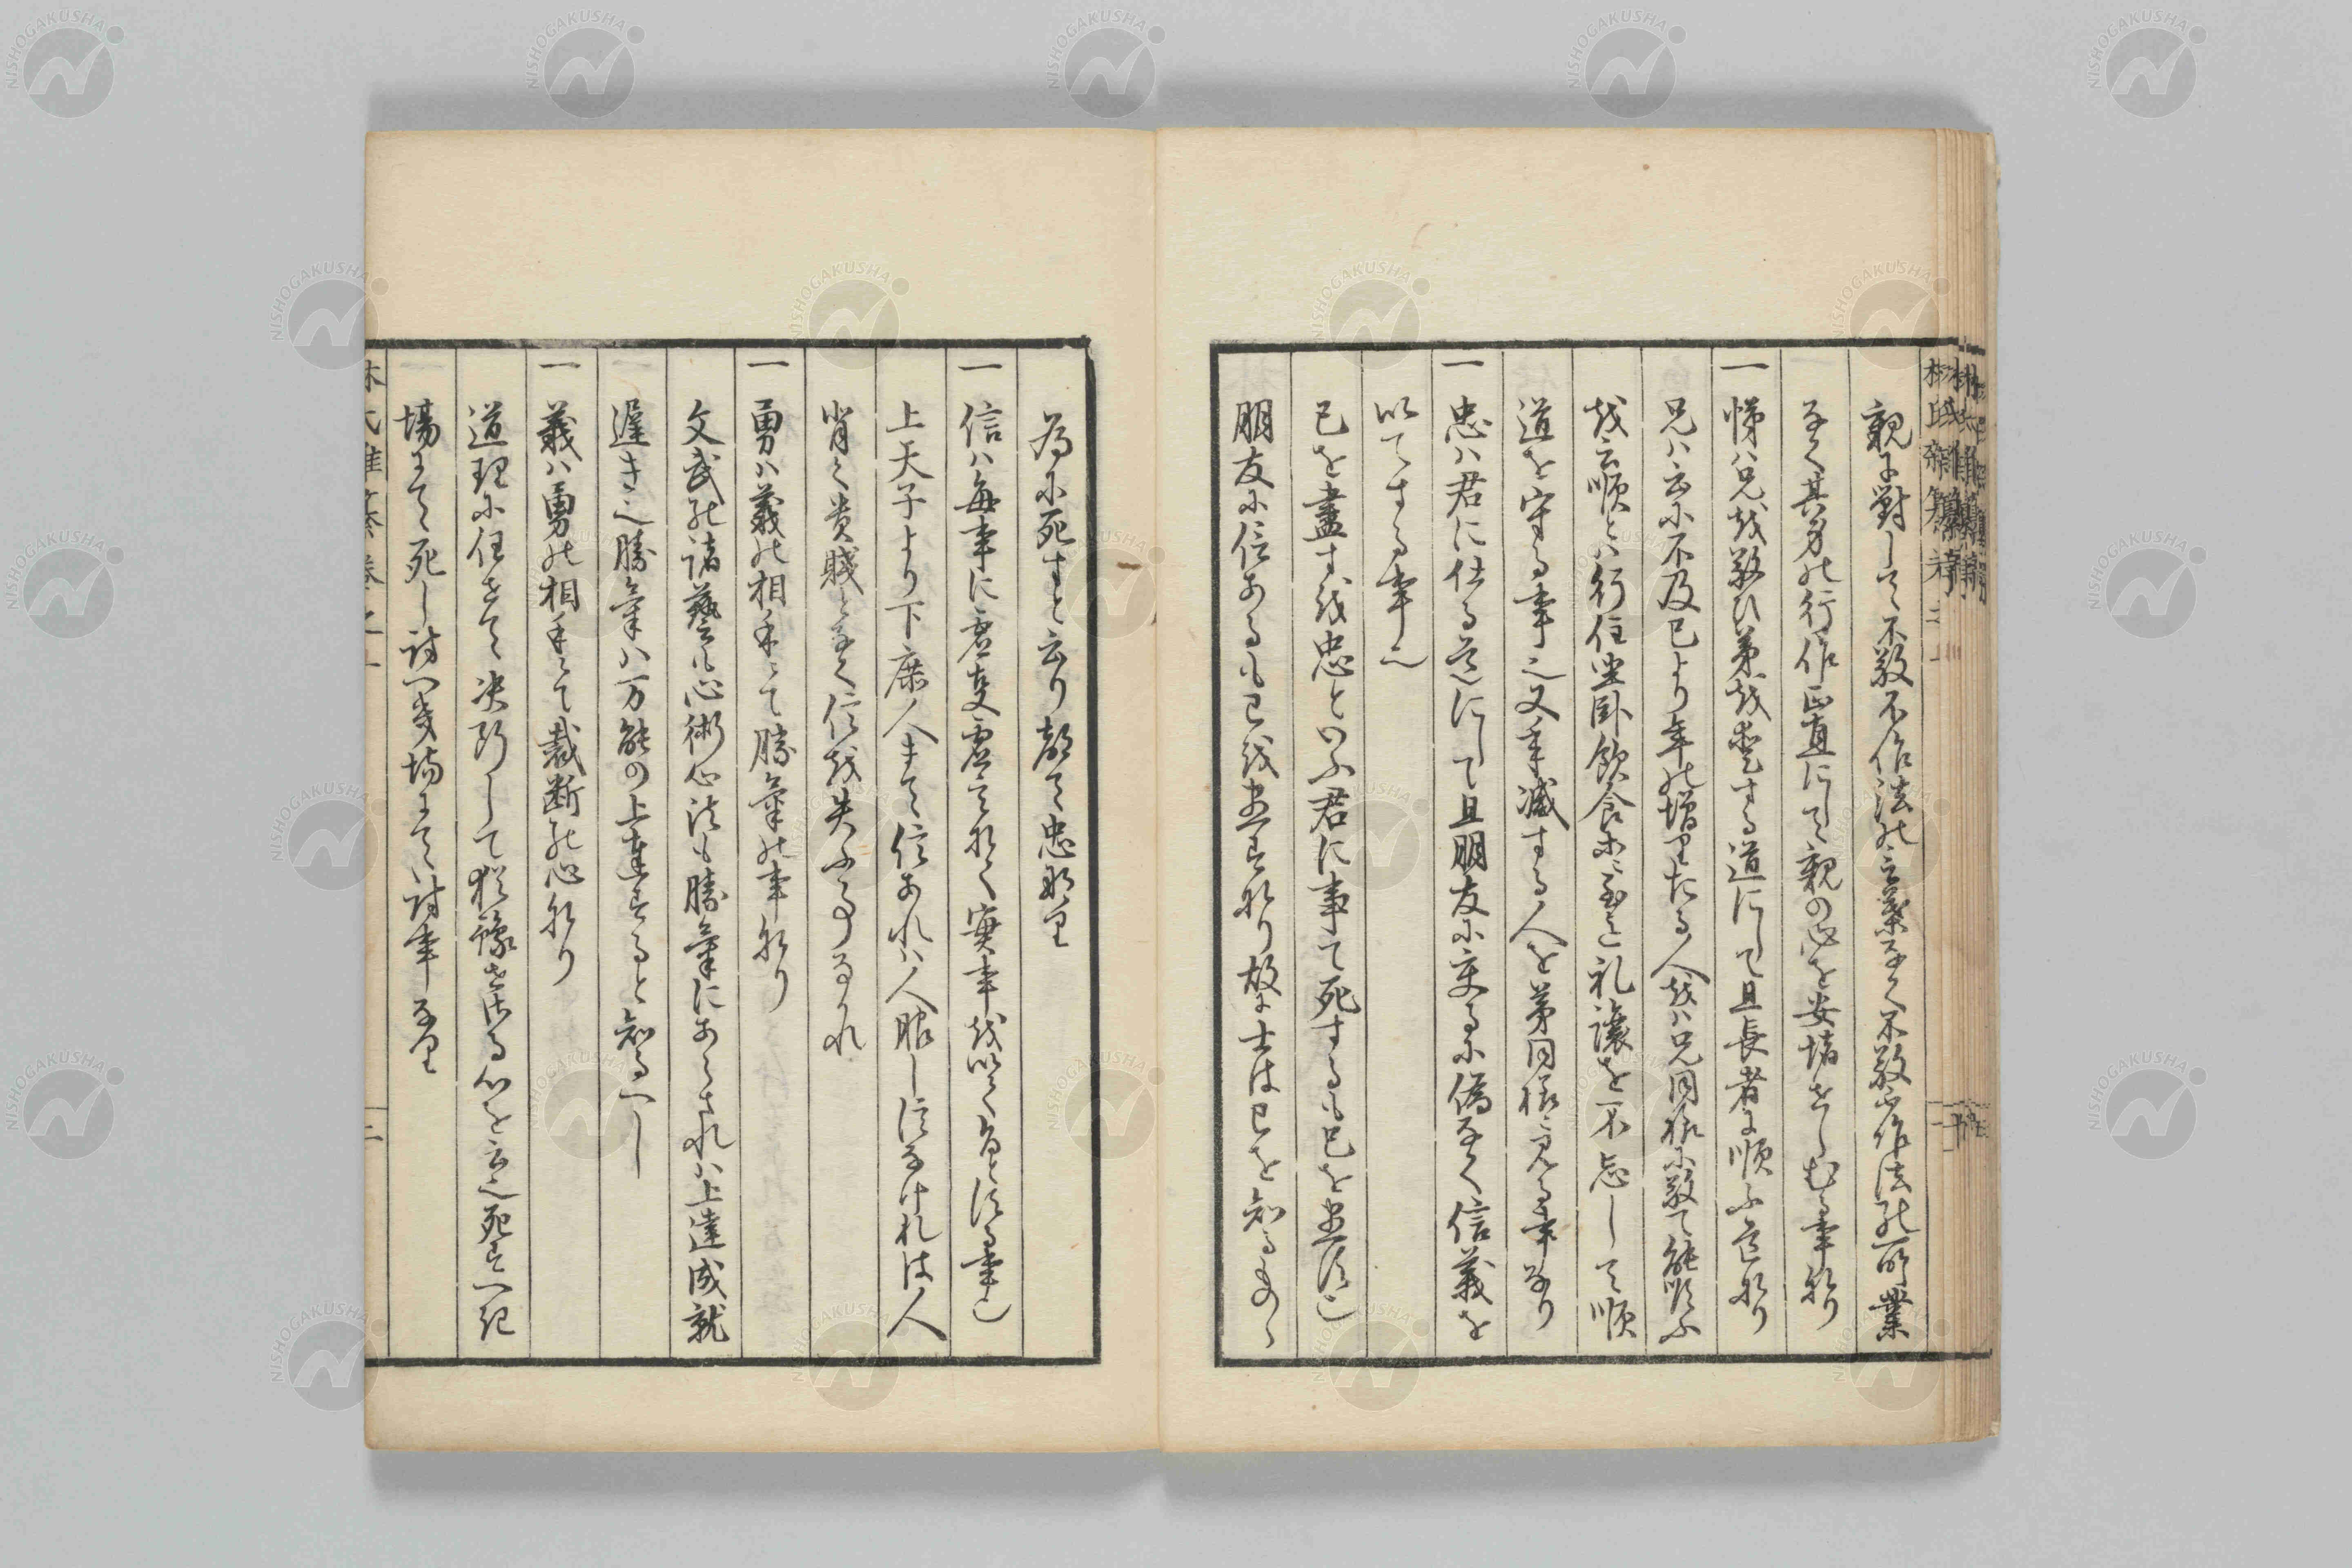 親に對して不敬不作法の言葉なく不敬不作法の所業
なく其身の行作正直にして親の心を安堵せしむる事なり
一 悌ハ兄を敬ひ弟を愛する道にして且長者に順ふ道なり
兄ハ云に不及己より年の増りたる人をハ兄同様に敬て能順ふ
を云順とハ行住坐臥飲食等に至迄礼讓を不忘して順
道を守る事也又年減する人を弟同様に見る事なり
一 忠ハ君に仕る道にして且朋友に交るに偽なく信義を
以てする事也
己を盡すを忠といふ君に事て死するも己を盡す也
朋友に信あるも己を盡すなり故に士は己を知るものゝ
為に死すと云り都て忠なり
一 信ハ毎事に虚妄虚言なく實事を以てする事也
上天子より下庶人まて信あれハ人服し信なけれは人
背く貴賤となく信を失ふ事なかれ
一 勇ハ義の相手にて勝氣の事なり
文武の諸藝も心術心法も勝氣にあらされハ上達成就
遅き也勝氣ハ万能の上達すると知るへし
一 義ハ勇の相手にて裁断の心なり
道理に任せて决断して猶豫せさる心を云也死すへき
場にて死し討へき場にて討事なり